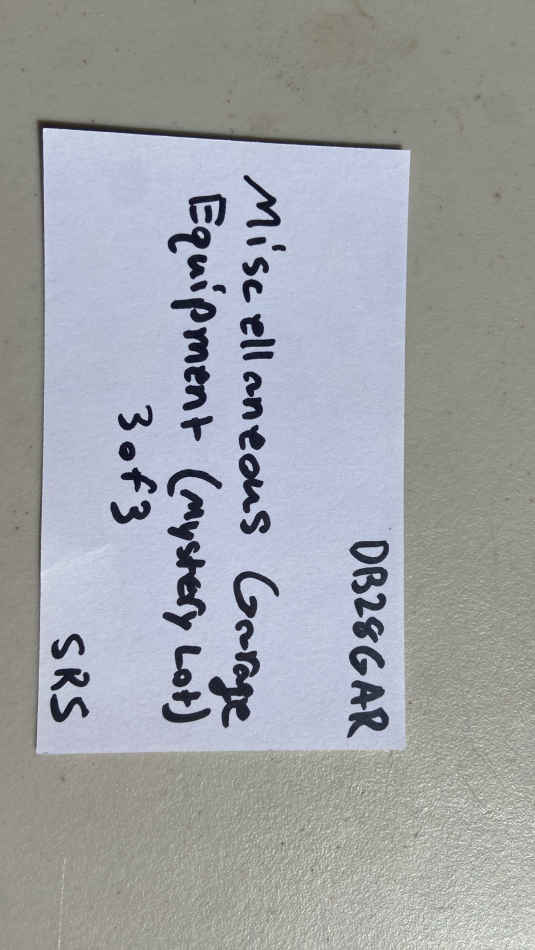 DB28GAR
Miscellaneous Garage
Equipment (Mystery Lot)
3 of 3
SRS